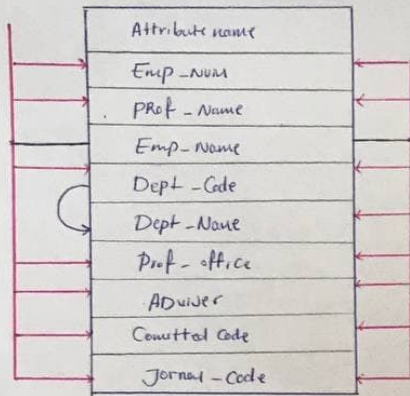 Attribute name
Emp_Num
PRof_Name
Emp_Name
Dept_Code
Dept_Name
Prof_office
ADviver
Comutted Code
Jornal_Code